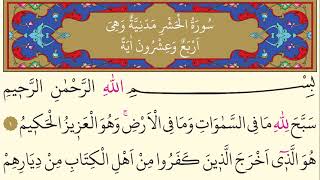 سُورَةُ الْحَشْرِ مَدَنِيَّةٌ وَهِيَ
اَرْبَعٌ وَعِشْرُونَ اٰيَةً
بِسْمِ اللّٰهِ الرَّحْمٰنِ الرَّحِيمِ
سَبَّحَ لِلّٰهِ مَا فِي السَّمٰوَاتِ وَمَا فِي الْاَرْضِۚ وَهُوَ الْعَزِيزُ الْحَكِيمُ ١
هُوَ الَّذ۪ٓي اَخْرَجَ الَّذِينَ كَفَرُوا مِنْ اَهْلِ الْكِتَابِ مِنْ دِيَارِهِمْ